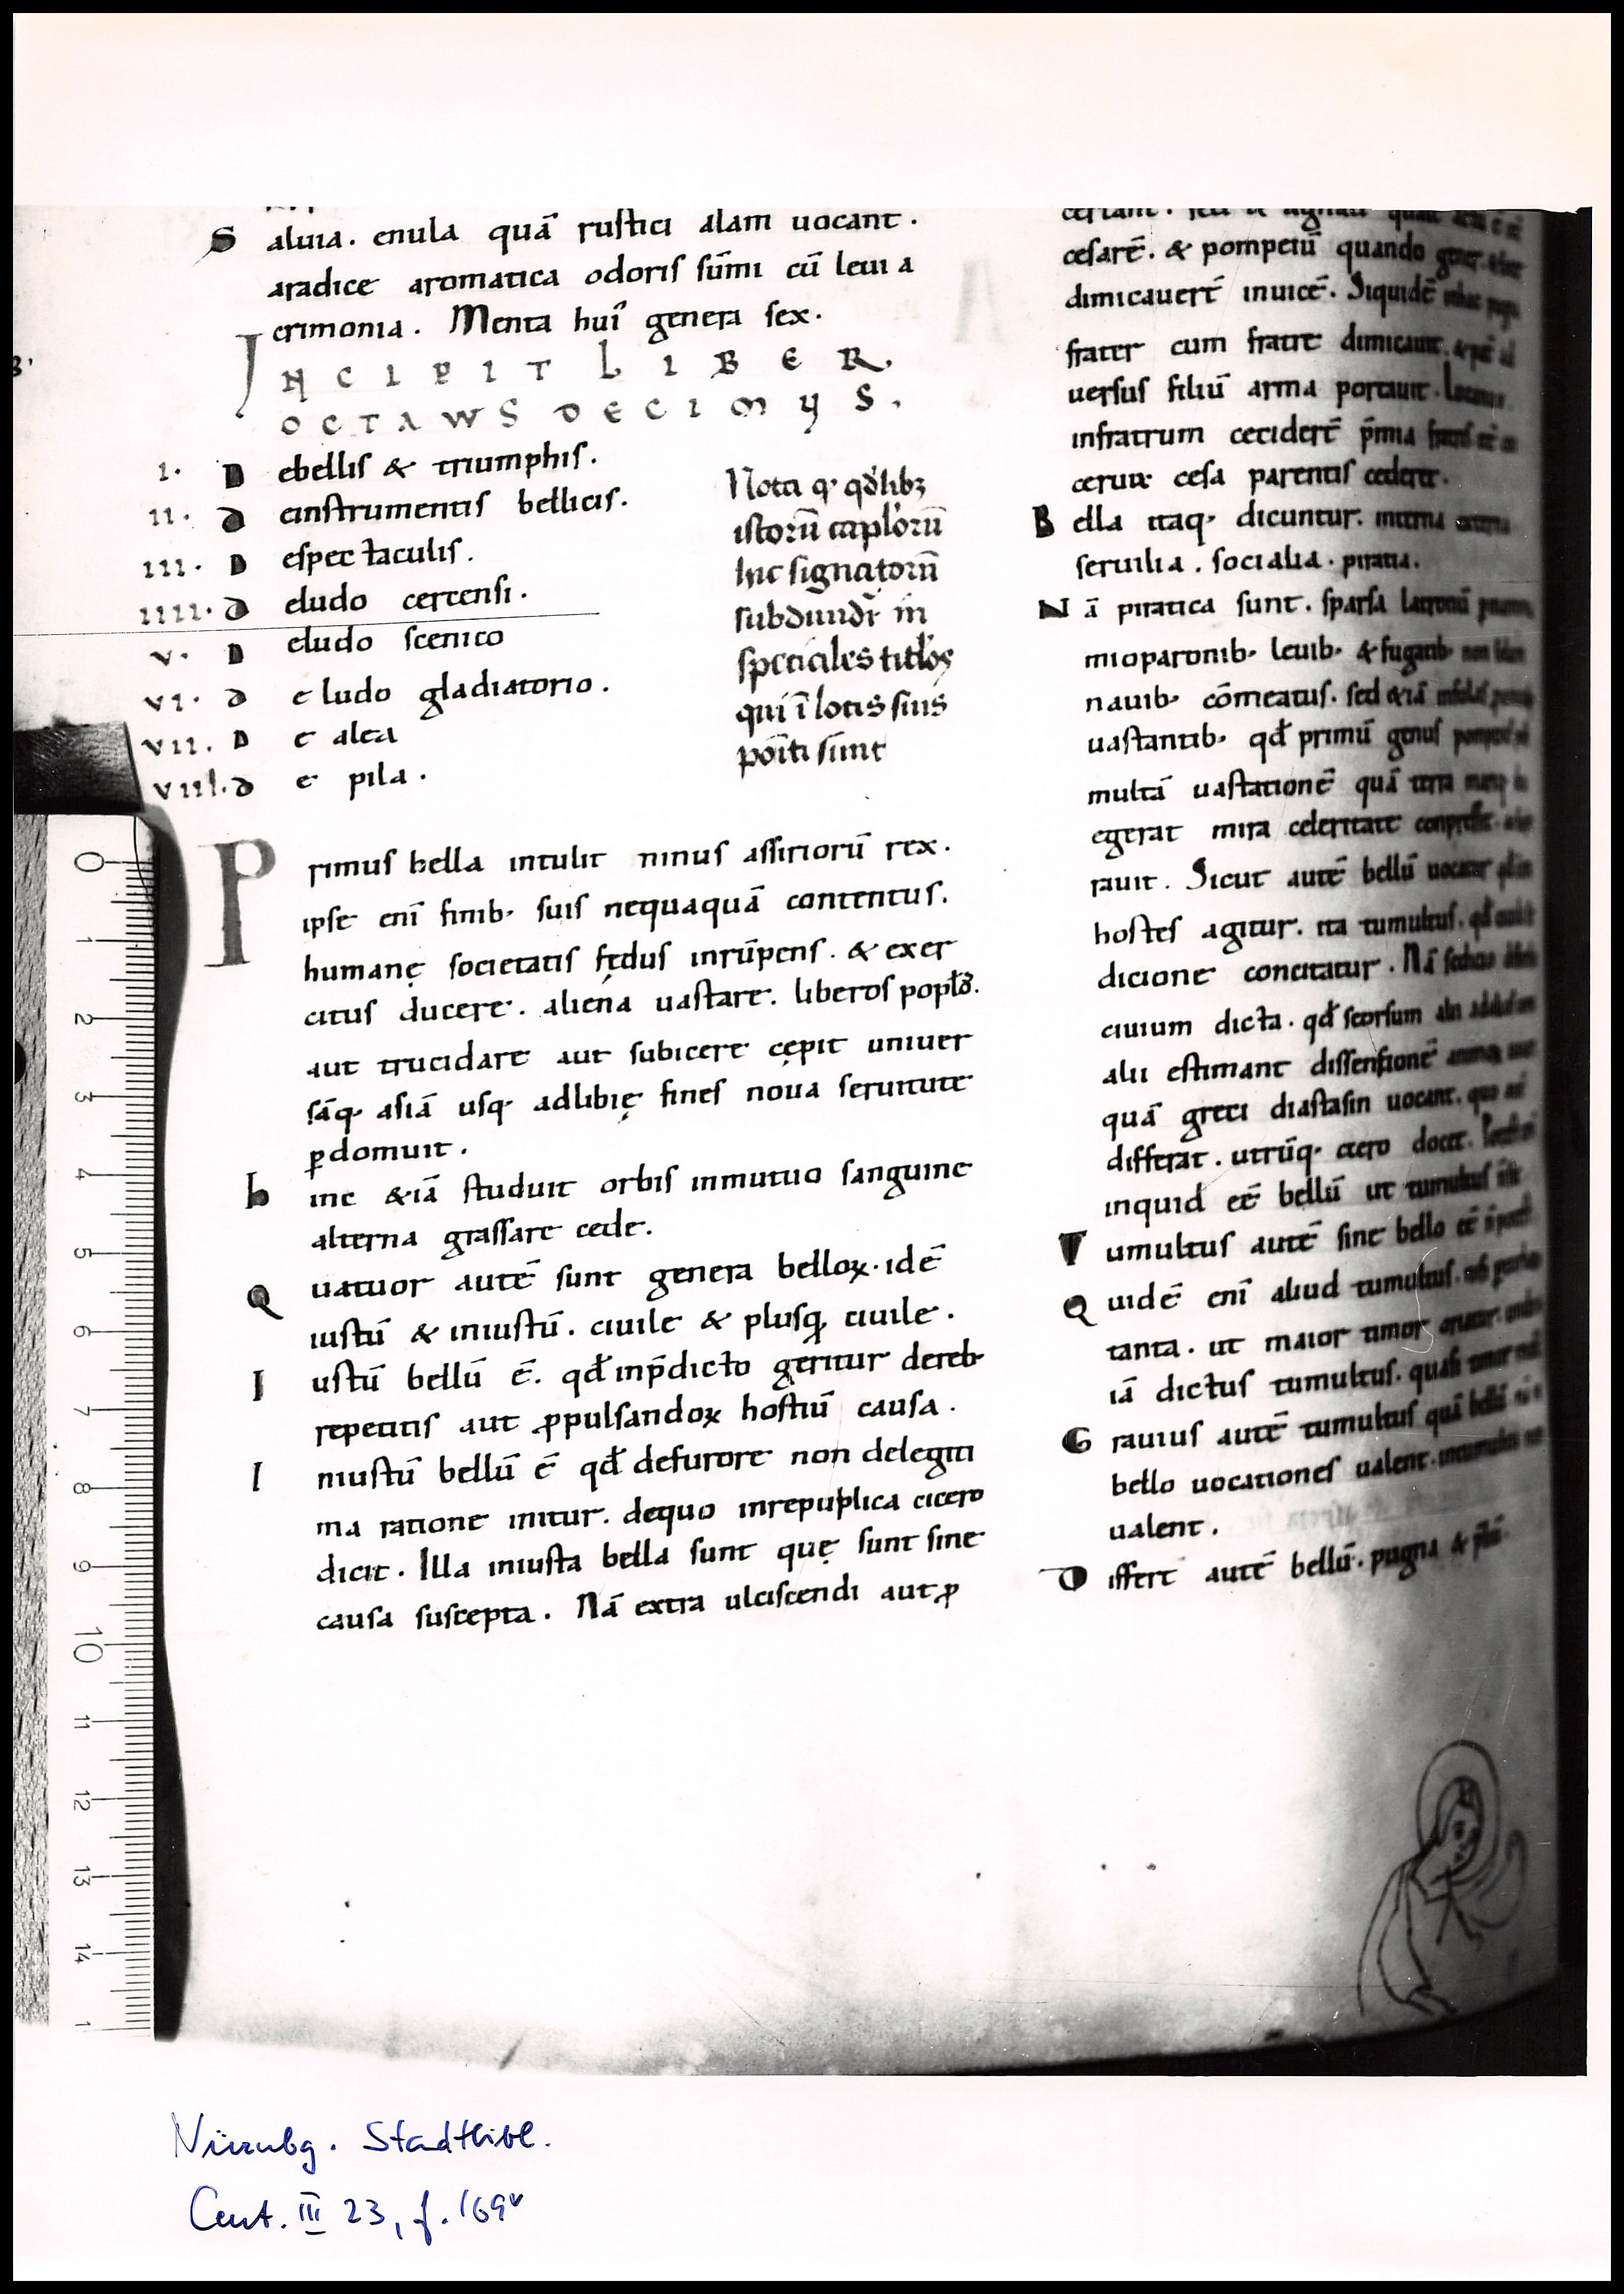 S aluia. enula quā rustici alam uocant.
aradice aromatica odoris sūmi cū leui a
crimonia. Menta hui᾽ genera sex.
INCIPIT LIBER
OCTAWS DECIMUS.
I. D ebellis & triumphis.
II. D einstrumentis bellicis.
III. D espectaculis.
IIII. D eludo cercensi.
V. D eludo scenico
VI. D e ludo gladiatorio.
VII. D e alea
VIII. D e pila.
Nota q᷒ qđlibꝫ
istorū capl'orū
hic signatorū
subdundr̄ in
speciales titl'os
qui ī locis suis
poīti sūnt
P rimus bella intulit ninus assiriorū rex.
ipse enī finib᷒ suis nequaquā contentus.
humanę societatis fędus inrūpens. & exer
citus ducere. aliena uastare. liberos popł'o.
aut trucidare aut subicere cępit uniuer
sāq᷒ asiā usq᷒ adlibię fines noua seruitute
ꝑdomuit.
h inc &iā studuit orbis inmutuo sanguine
alterna grassare cede.
Q uatuor autē sunt genera belloꝝ. idē
iustū & iniustū. ciuile & plusꝗ ciuile.
I ustū bellū ē. qđ inp̄dicto geritur dereb᷒
repetitis aut ꝓpulsandoꝝ hostiū causa.
I niustū bellū ē qđ defurore non delegiti
ma ratione initur. dequo inrepuplica cicero
dicit. Illa iniusta bella sunt quę sunt sine
causa suscepta. Nā extra ulciscendi aut ꝓ
cesarē. & pompeiū quando
dimicauert̄ inuicē. Siquidē
frater cum fratre dimicauit.
uersus filiū arma portauit.
infratrum cecidert̄ p̄mia
ceruix cesa parentis cederet.
B ella itaq᷒ dicuntur. interna
seruilia. socialia. piratica.
N ā piratica sunt. sparsa latronū
mioparonib᷒ leuib᷒ & fugacib᷒ non
nauib᷒ cōmeatus. sed &iā insulas
uastantib᷒ qđ primū genus
multā uastationē quā terra
egerat mira celeritate
rauit. Sicut autē bellū uocatur
hostes agitur. ita tumultus. qđ
dicione concitatur. Nā seditio
ciuium dicta. qđ seorsum alii
alii estimant dissensionē
quā greci diastasin uocant. quo
differat. utrūq᷒ cicero docet.
inquid eē bellū ut tumultus
T umultus autē sine bello eē
Q uidē enī aliud tumultus.
tanta. ut maior timor oriatur.
iā dictus tumultus. quasi timor
G rauius autē tumultus quā bellū
bello uocationes ualent.
ualent.
D iffert autē bellū. pugna &
0
1
2
3
4
5
6
7
8
9
10
11
12
13
14
1
Nürnbg. Stadtbibl.
Cent. III 23, f. 169ᵛ